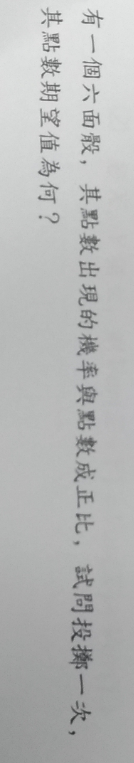 有一個六面骰，其點數出現的機率與點數成正比，試問投擲一次，
其點數期望值為何？